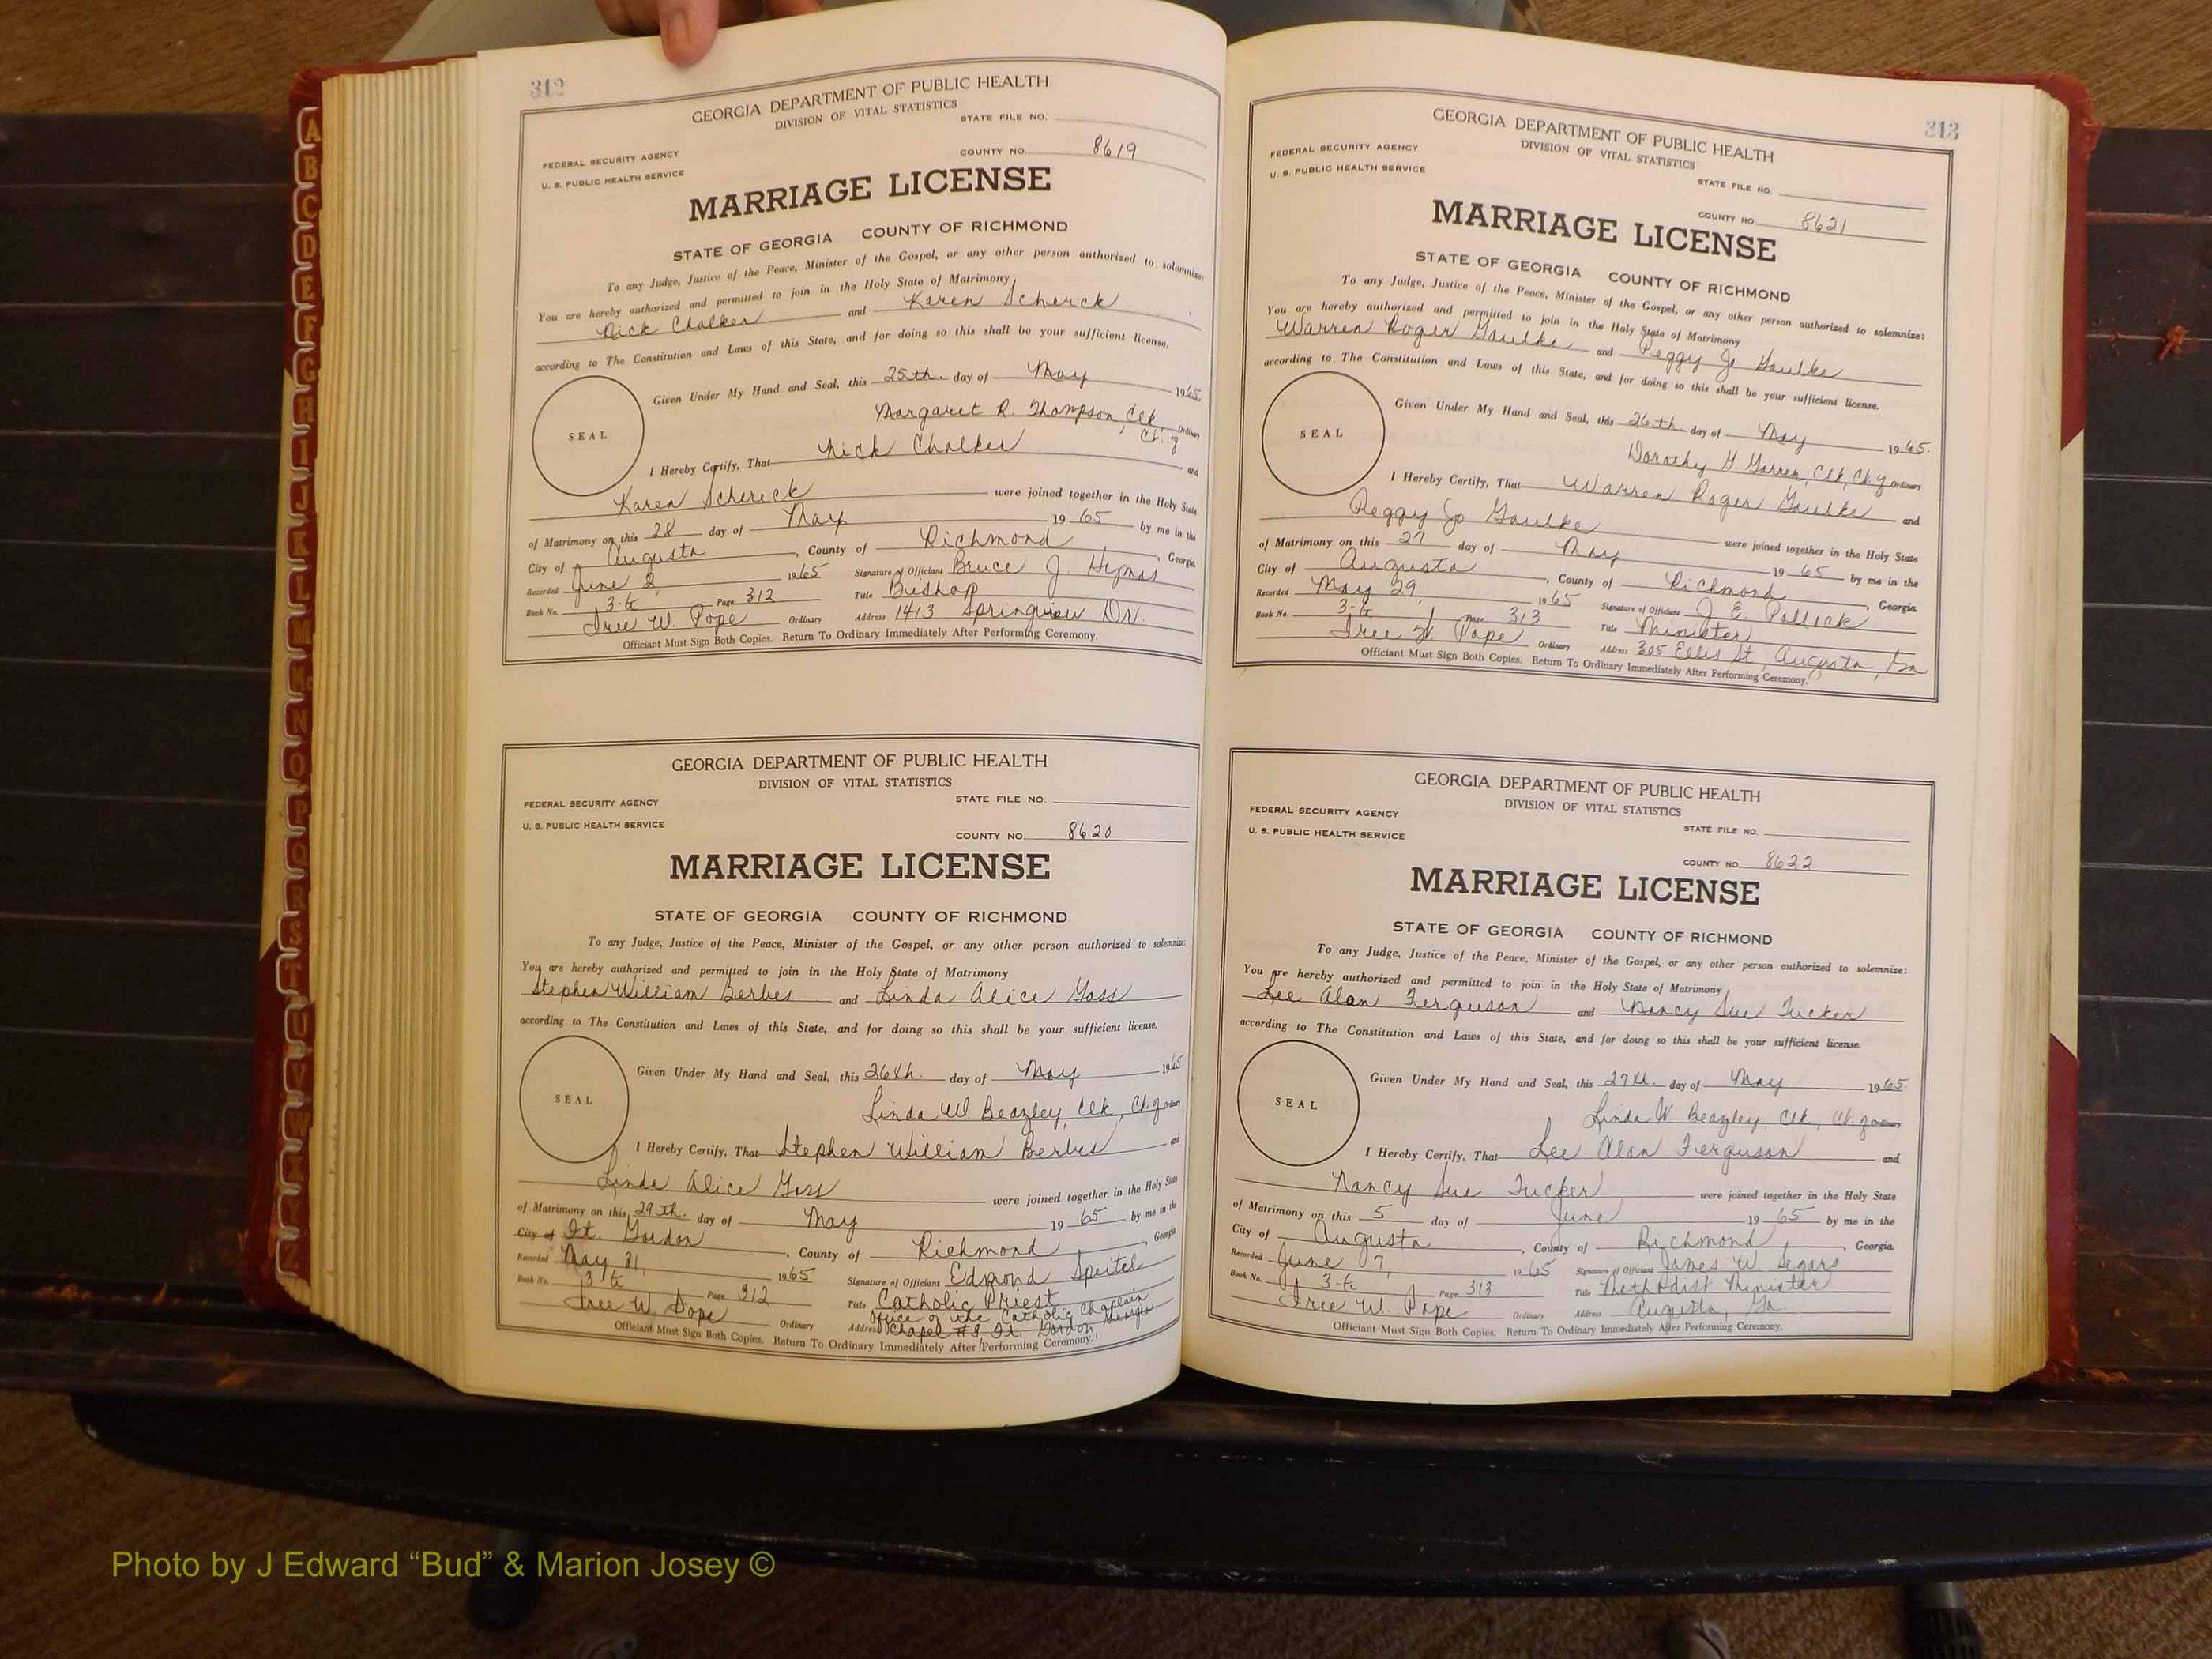 312
GEORGIA DEPARTMENT OF PUBLIC HEALTH
DIVISION OF VITAL STATISTICS
STATE FILE NO.
FEDERAL SECURITY AGENCY
COUNTY NO. 8619
U. S. PUBLIC HEALTH SERVICE
MARRIAGE LICENSE
STATE OF GEORGIA COUNTY OF RICHMOND
To any Judge, Justice of the Peace, Minister of the Gospel, or any other person authorized to solemnize:
You are hereby authorized and permitted to join in the Holy State of Matrimony
Nick Chalker and Karen Scherck
according to The Constitution and Laws of this State, and for doing so this shall be your sufficient license.
Given Under My Hand and Seal, this 25th. day of May 1965.
Margaret R. Thompson, Clk., Ct. of Ordinary
SEAL
I Hereby Certify, That Nick Chalker and
Karen Scherck were joined together in the Holy State
of Matrimony on this 28 day of May 1965 by me in the
City of Augusta, County of Richmond, Georgia.
Recorded June 2, 1965 Signature of Officiant Bruce J. Hymas
Book No. 3-G Page 312 Title Bishop
Tree W. Pope Ordinary Address 1413 Springview Dr.
Officiant Must Sign Both Copies. Return To Ordinary Immediately After Performing Ceremony.
GEORGIA DEPARTMENT OF PUBLIC HEALTH
DIVISION OF VITAL STATISTICS
FEDERAL SECURITY AGENCY
STATE FILE NO.
U. S. PUBLIC HEALTH SERVICE
COUNTY NO. 8620
MARRIAGE LICENSE
STATE OF GEORGIA COUNTY OF RICHMOND
To any Judge, Justice of the Peace, Minister of the Gospel, or any other person authorized to solemnize:
You are hereby authorized and permitted to join in the Holy State of Matrimony
Stephen William Berbes and Linda Alice Goss
according to The Constitution and Laws of this State, and for doing so this shall be your sufficient license.
Given Under My Hand and Seal, this 26th. day of May 1965
Linda W Beazley, Clk, Ct. of Ordinary
SEAL
I Hereby Certify, That Stephen William Berbes and
Linda Alice Goss were joined together in the Holy State
of Matrimony on this 29th. day of May 1965 by me in the
City of Ft. Gordon, County of Richmond, Georgia
Recorded May 31, 1965 Signature of Officiant Edmond Speitel
Book No. 3-G Page 312 Title Catholic Priest
Office of the Catholic Chaplain
Tree W. Pope Ordinary Address Chapel #8 Ft. Gordon Georgia
Officiant Must Sign Both Copies. Return To Ordinary Immediately After Performing Ceremony.
313
GEORGIA DEPARTMENT OF PUBLIC HEALTH
DIVISION OF VITAL STATISTICS
FEDERAL SECURITY AGENCY
STATE FILE NO.
U. S. PUBLIC HEALTH SERVICE
COUNTY NO. 8621
MARRIAGE LICENSE
STATE OF GEORGIA COUNTY OF RICHMOND
To any Judge, Justice of the Peace, Minister of the Gospel, or any other person authorized to solemnize:
You are hereby authorized and permitted to join in the Holy State of Matrimony
Warren Roger Gaulke and Peggy Jo Gaulke
according to The Constitution and Laws of this State, and for doing so this shall be your sufficient license.
Given Under My Hand and Seal, this 26th day of May 1965.
Dorothy G. Garren, Clk, Ct. of Ordinary
SEAL
I Hereby Certify, That Warren Roger Gaulke and
Peggy Jo Gaulke were joined together in the Holy State
of Matrimony on this 27 day of May 1965 by me in the
City of Augusta, County of Richmond, Georgia.
Recorded May 29, 1965 Signature of Officiant J. E. Pollock
Book No. 3-G Page 313 Title Minister
Tree W. Pope Ordinary Address 305 Ellis St, Augusta, Ga
Officiant Must Sign Both Copies. Return To Ordinary Immediately After Performing Ceremony.
GEORGIA DEPARTMENT OF PUBLIC HEALTH
DIVISION OF VITAL STATISTICS
FEDERAL SECURITY AGENCY
STATE FILE NO.
U. S. PUBLIC HEALTH SERVICE
COUNTY NO. 8622
MARRIAGE LICENSE
STATE OF GEORGIA COUNTY OF RICHMOND
To any Judge, Justice of the Peace, Minister of the Gospel, or any other person authorized to solemnize:
You are hereby authorized and permitted to join in the Holy State of Matrimony
Lee Alan Ferguson and Nancy Sue Tucker
according to The Constitution and Laws of this State, and for doing so this shall be your sufficient license.
Given Under My Hand and Seal, this 27th. day of May 1965.
Linda W Beazley, Clk, Ct. of Ordinary
SEAL
I Hereby Certify, That Lee Alan Ferguson and
Nancy Sue Tucker were joined together in the Holy State
of Matrimony on this 5 day of June 1965 by me in the
City of Augusta, County of Richmond, Georgia.
Recorded June 7, 1965 Signature of Officiant James W. Segars
Book No. 3-G Page 313 Title Methodist Minister
Tree W. Pope Ordinary Address Augusta, Ga.
Officiant Must Sign Both Copies. Return To Ordinary Immediately After Performing Ceremony.
A
B
C
D
E
F
G
H
I
J
K
L
M
Mc
N
O
P
Q
R
S
T
U
V
W
X
Y
Z
Photo by J Edward “Bud” & Marion Josey ©